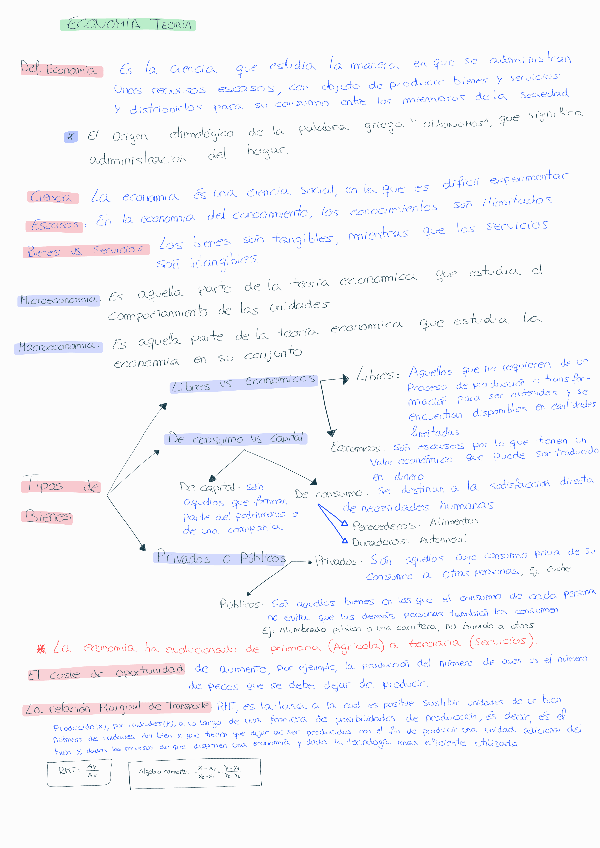 ECONOMÍA TEORÍA
Def. Economía Es la ciencia que estudia la manera en que se administran
unos recursos escasos, con objeto de producir bienes y servicios
y distribuirlos para su consumo entre los miembros de la sociedad
* El origen etimológico de la palabra griega " ", que significa
administración del hogar.
Ciencia: La economía es una ciencia social, en la que es difícil experimentar
Escasos: En la economía del conocimiento, los conocimientos son ilimitados
Bienes vs Servicios: Los bienes son tangibles, mientras que los servicios
son intangibles
Microeconomía: Es aquella parte de la teoría económica que estudia el
comportamiento de las unidades
Macroeconomía: Es aquella parte de la teoría económica que estudia la
economía en su conjunto
Tipos de
Bienes
Libres vs económicos
Libres: Aquellos que no requieren de un
proceso de producción o transfor-
mación para ser obtenidos y se
encuentran disponibles en cantidades
ilimitadas
Económicos: Son escasos por lo que tienen un
valor económico que puede ser traducido
en dinero
De consumo vs capital
De capital: son
aquellos que forman
parte del patrimonio
de una
De consumo: Se destinan a la satisfacción directa
de necesidades humanas
Perecederos: Alimentos
Duraderos: Automóvil
Privados o Públicos
Privados: Son aquellos cuyo consumo priva de su
consumo a otras personas, Ej. coche
Públicos: Son aquellos bienes en los que el consumo de cada persona
no evita que las demás personas también los consuman
Ej. Alumbrado público o una carretera, no
* La economía ha evolucionado de primaria (Agrícola) a terciaria (Servicios).
El coste de oportunidad de aumentar, por ejemplo, la producción del número de es el número
de peces que se debe dejar de producir.
La relación Marginal de Transformación RMT, es la tasa a la cual es posible sustituir unidades de un bien
producido x₁, por unidades x₂, a lo largo de una frontera de posibilidades de producción, es decir, es el
número de unidades del bien x que tienen que dejar de ser producidas con el fin de producir una unidad adicional del
bien y, dados los recursos de que disponen una economía y dada la tecnología más eficiente utilizada
RMT =
Algebraicamente: